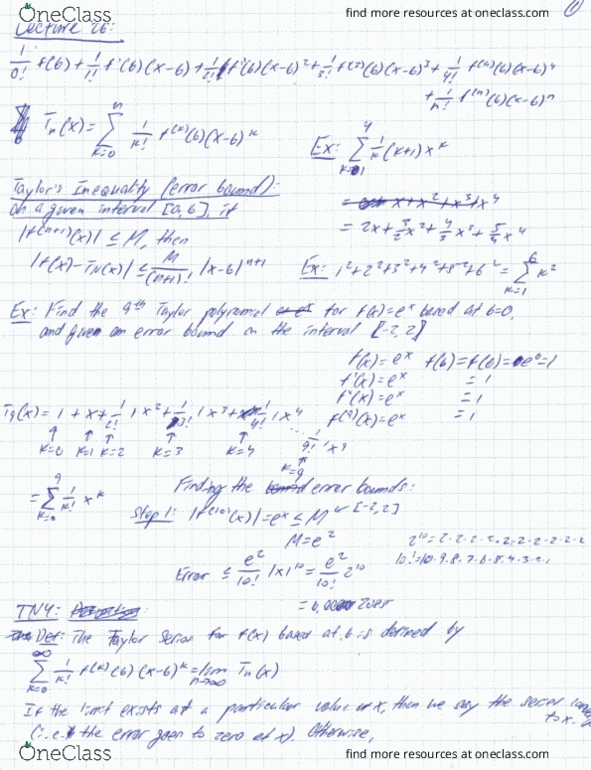 OneClass
find more resources at oneclass.com
Lecture 26:
1/0! f(b) + 1/1! f'(b)(x-b) + 1/2! f''(b)(x-b)² + 1/3! f⁽³⁾(b)(x-b)³ + 1/4! f⁽⁴⁾(b)(x-b)⁴
+ 1/n! f⁽ⁿ⁾(b)(x-b)ⁿ
Tn(x) = Σ k=0 n 1/k! f⁽ᵏ⁾(b)(x-b)ᵏ
Ex: Σ k=1 4 1/k (k+1) xᵏ
= 2x + 3/2 x² + 4/3 x³ + 5/4 x⁴
Taylor's Inequality (error bound):
on a given interval [a,b], if
|f⁽ⁿ⁺¹⁾(x)| ≤ M, then
|f(x) - Tn(x)| ≤ M/(n+1)! |x-b|ⁿ⁺¹
Ex: 1²+2²+3²+4²+5²+6² = Σ k=1 6 k²
Ex: Find the 9th Taylor polynomial for f(x) = eˣ based at b=0,
and given an error bound on the interval [-2,2]
f(x) = eˣ f(b) = f(0) = e⁰ = 1
f'(x) = eˣ = 1
f''(x) = eˣ = 1
f⁽⁹⁾(x) = eˣ = 1
T9(x) = 1 + x + 1/2! 1x² + 1/3! 1x³ + 1/4! 1x⁴
1/9! 1x⁹
k=0 k=1 k=2 k=3 k=4
k=9
= Σ k=0 9 1/k! xᵏ
Finding the error bounds:
Step 1: |f⁽¹⁰⁾(x)| = eˣ ≤ M [-2,2]
M = e²
2¹⁰ = 2·2·2·2·2·2·2·2·2·2
10! = 10·9·8·7·6·5·4·3·2·1
Error ≤ e²/10! |x|¹⁰ = e²/10! 2¹⁰
TN4:
Def: The Taylor Series for f(x) based at b is defined by
Σ k=0 ∞ 1/k! f⁽ᵏ⁾(b)(x-b)ᵏ = lim n→∞ Tn(x)
If the limit exists at a particular value of x, then we say the series
to x.
(i.e. the error goes to zero at x). Otherwise,
OneClass
find more resources at oneclass.com